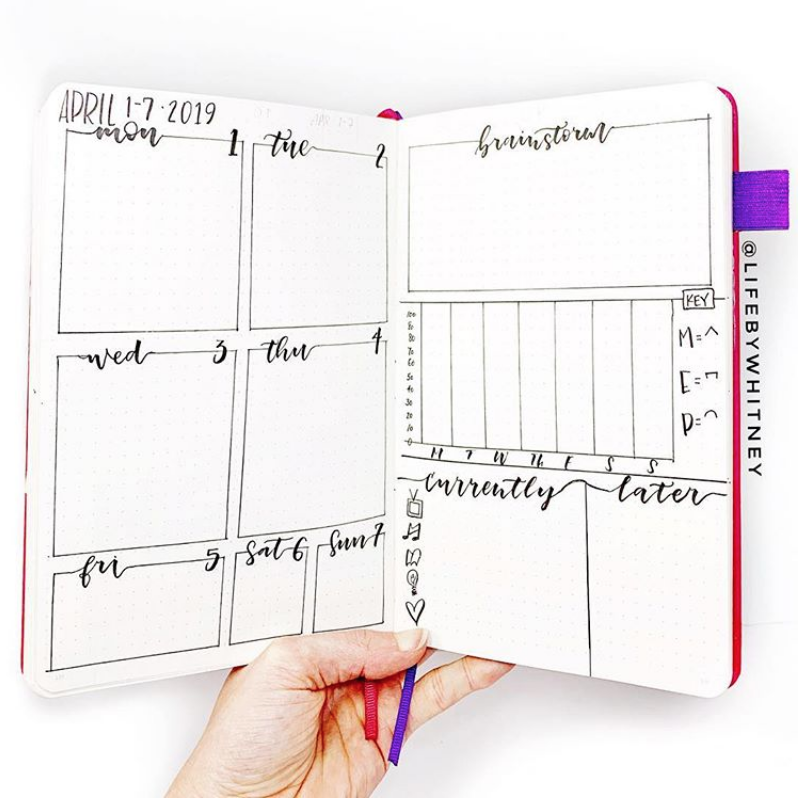 APRIL 1-7·2019
mon 1
tue 2
wed 3
thu 4
fri 5
Sat 6
Sun 7
brainstorm
KEY
M=^
E=┌┐
P=⌒
100
90
80
70
60
50
40
30
20
10
0
M T W Th F S S
Currently
later
@LIFEBYWHITNEY